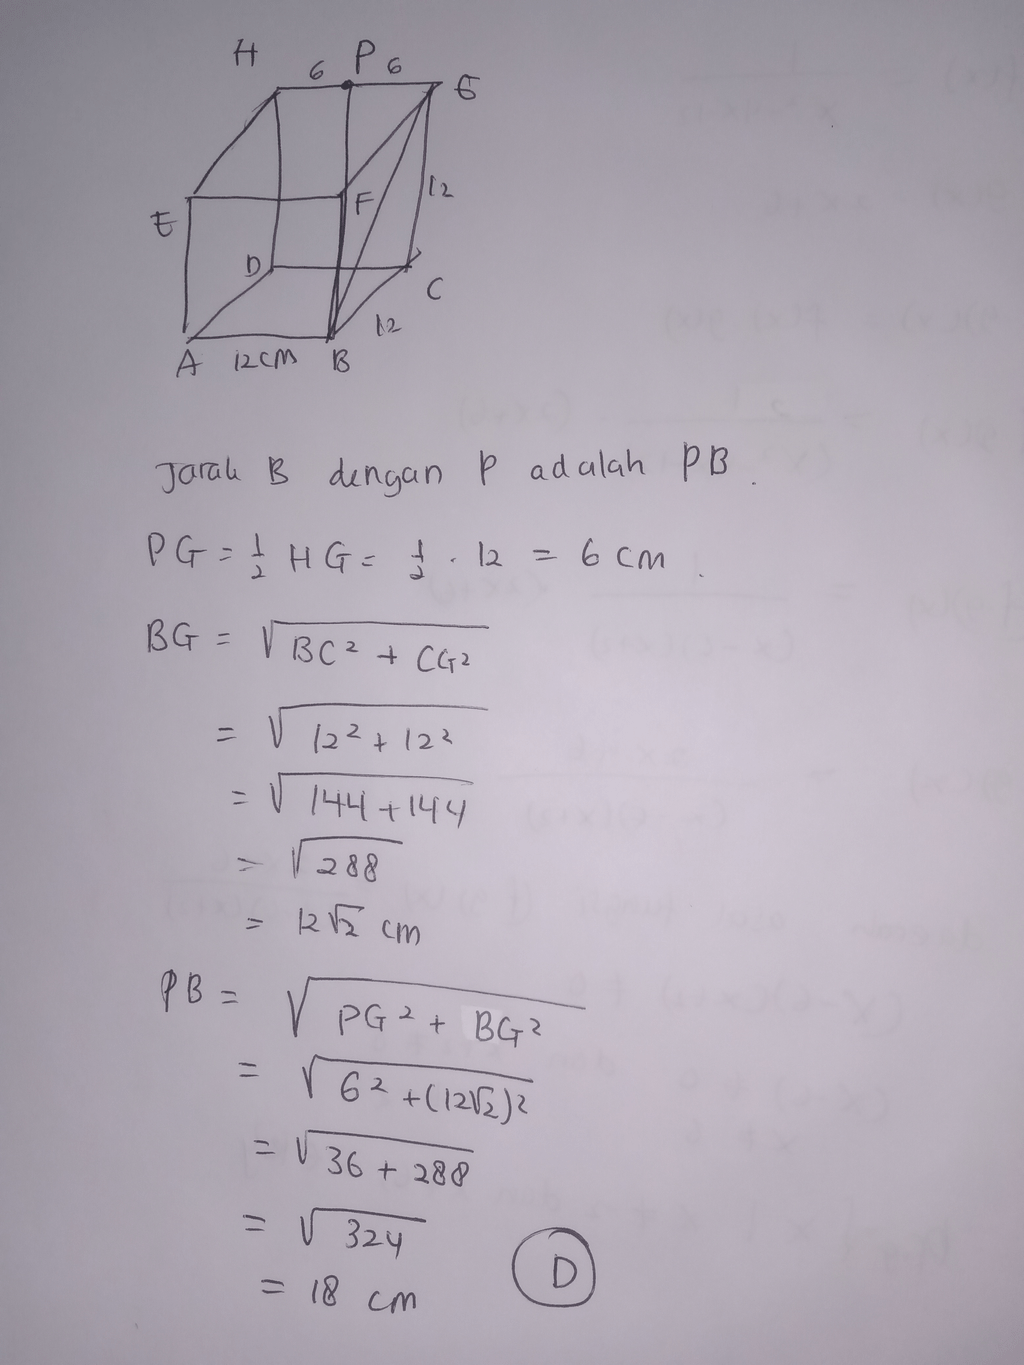 H 6 P 6 G
E F 12
D C
12
A 12 CM B
Jarak B dengan P adalah PB.
PG = 1/2 HG = 1/2 . 12 = 6 cm.
BG = √(BC² + CG²)
= √(12² + 12²)
= √(144 + 144)
= √288
= 12√2 cm
PB = √(PG² + BG²)
= √(6² + (12√2)²)
= √(36 + 288)
= √324
= 18 cm D